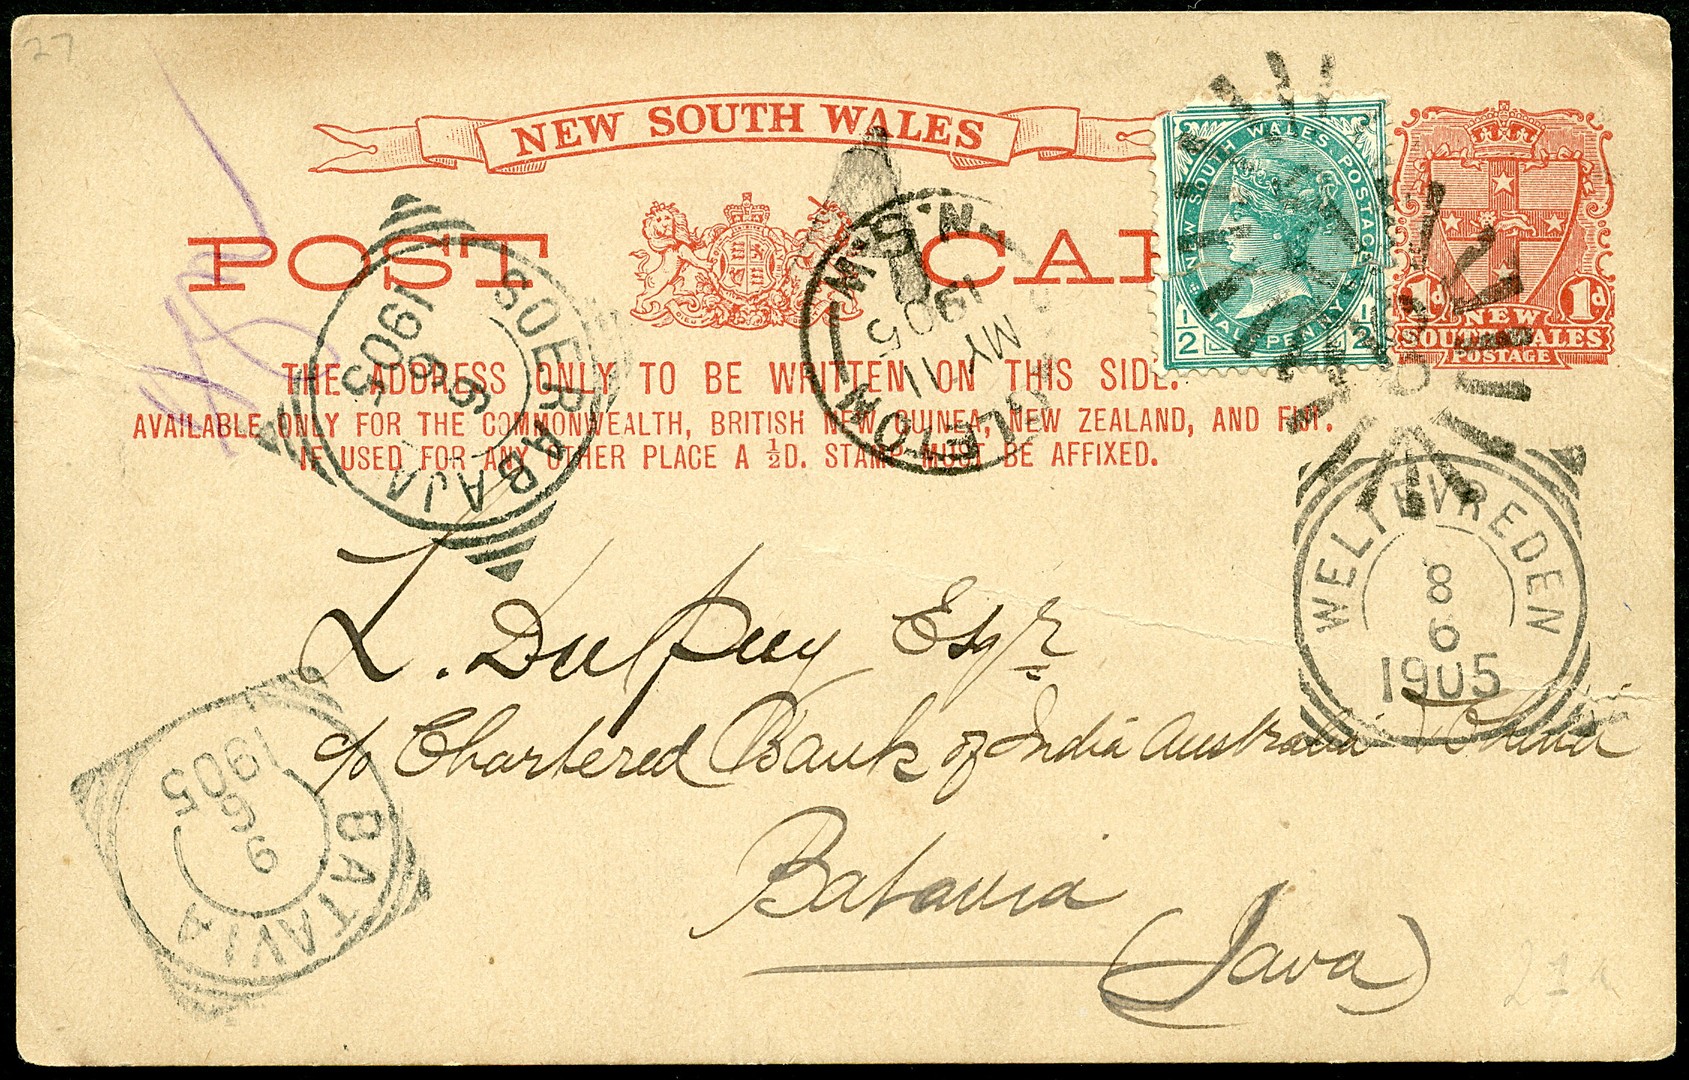 27
NEW SOUTH WALES
POST CAR
NEW SOUTH WALES POSTAGE
HALFPENNY
1/2 1/2
1d 1d
NEW
SOUTH WALES
POSTAGE
THE ADDRESS ONLY TO BE WRITTEN ON THIS SIDE.
AVAILABLE ONLY FOR THE COMMONWEALTH, BRITISH NEW GUINEA, NEW ZEALAND, AND FIJI.
IF USED FOR ANY OTHER PLACE A ½D. STAMP MUST BE AFFIXED.
SOERABAJA
6 6
1905
N.S.W
MY 11
1905
WELTEVREDEN
8
6
1905
L. Dulpuy Esqr
c/o Chartered Bank of India Australia & China
Batavia
(Java)
BATAVIA
9 6
1905